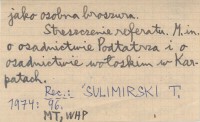 jako osobna broszura.
Streszczenie referatu. M.in.
o osadnictwie Podtatrza i o
osadnictwie wołoskim w Kar-
patach.
Rec.: SULIMIRSKI T,
1974: 96.
MT, WHP